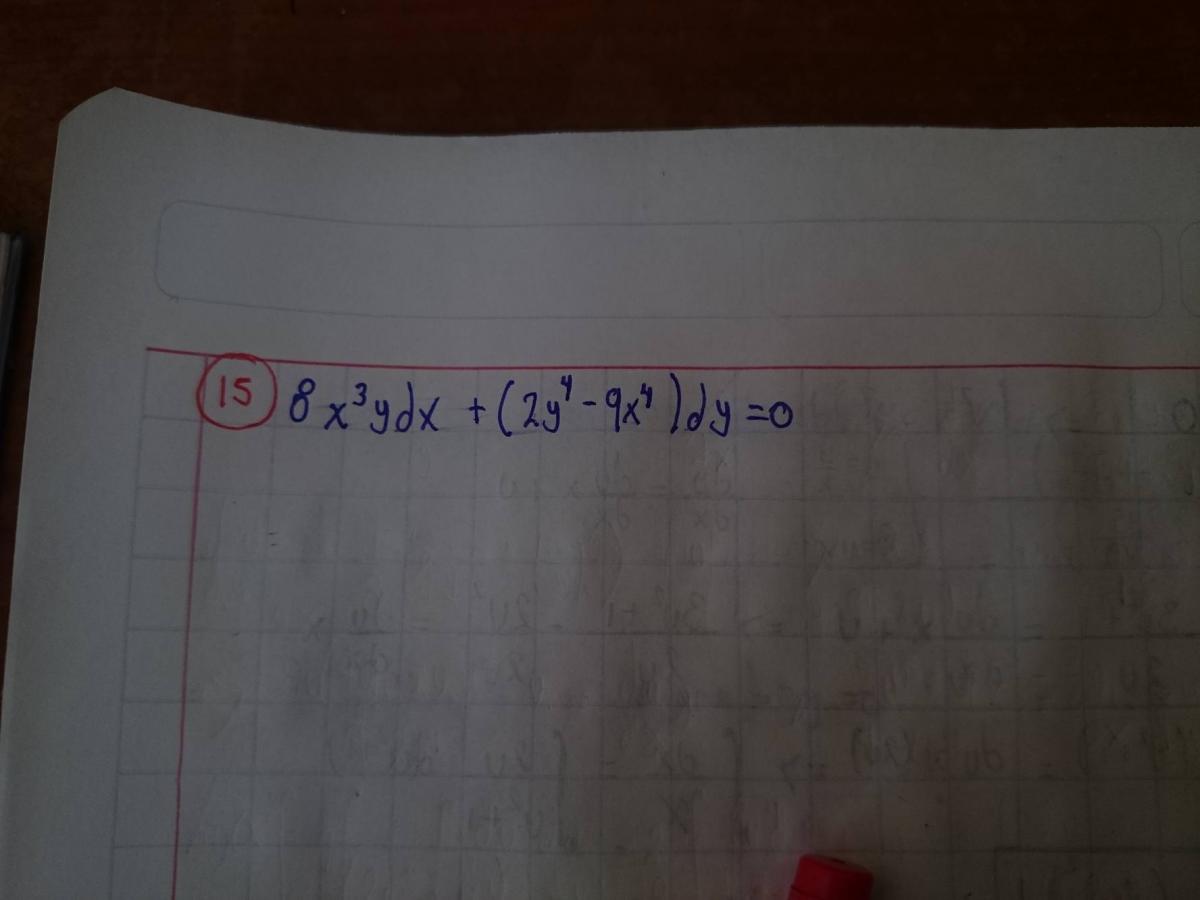 15 8x³ydx + (2y⁴ - 9x⁴)dy = 0